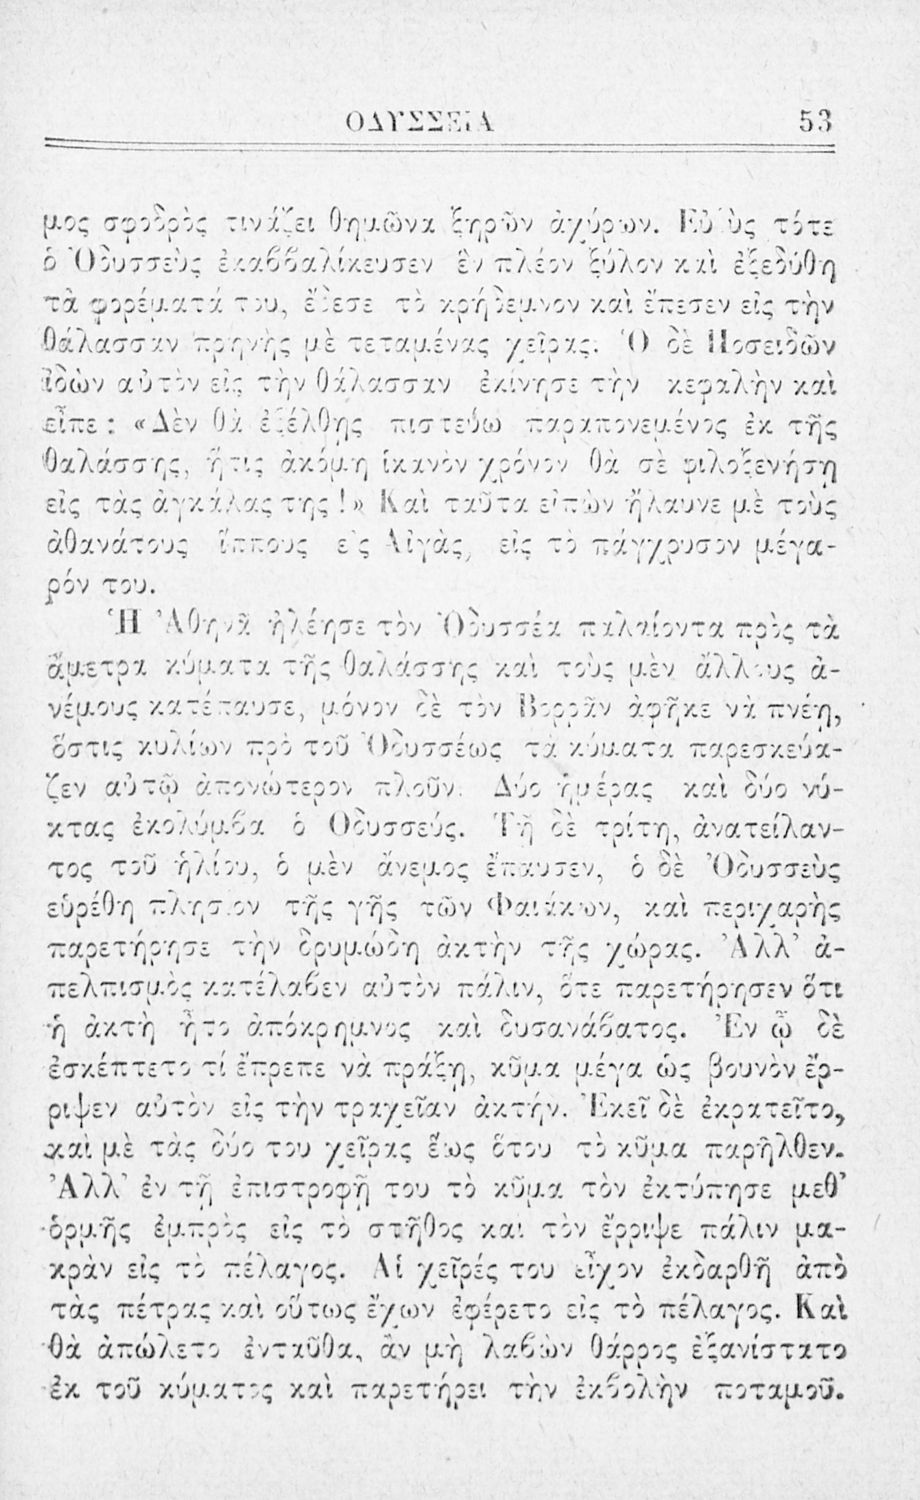 ΟΔΥΣΣΕΙΑ 53
μος σφοδρὸς τινάζει θημῶνα ξηρῶν ἀχύρων. Εὐθὺς τότε
ὁ Ὀδυσσεὺς ἐκαββαλίκευσεν ἓν πλέον ξύλον καὶ ἐξεδύθη
τὰ φορέματά του, ἔδεσε τὸ κρήδεμνον καὶ ἔπεσεν εἰς τὴν
θάλασσαν πρηνὴς μὲ τεταμένας χεῖρας. Ὁ δὲ Ποσειδῶν
ἰδὼν αὐτὸν εἰς τὴν θάλασσαν ἐκίνησε τὴν κεφαλὴν καὶ
εἶπε : «Δὲν θὰ ἐξέλθῃς πιστεύω παραπονεμένος ἐκ τῆς
θαλάσσης, ἥτις ἀκόμη ἱκανὸν χρόνον θὰ σὲ φιλοξενήσῃ
εἰς τὰς ἀγκάλας της !» Καὶ ταῦτα εἰπὼν ἤλαυνε μὲ τοὺς
ἀθανάτους ἵππους εἰς Αἰγὰς, εἰς τὸ πάγχρυσον μέγα-
ρόν του.
Ἡ Ἀθηνᾶ ἠλέησε τὸν Ὀδυσσέα παλαίοντα πρὸς τὰ
ἄμετρα κύματα τῆς θαλάσσης καὶ τοὺς μὲν ἄλλους ἀ-
νέμους κατέπαυσε, μόνον δὲ τὸν Βορρᾶν ἀφῆκε νὰ πνέῃ,
ὅστις κυλίων πρὸ τοῦ Ὀδυσσέως τὰ κύματα παρεσκεύα-
ζεν αὐτῷ ἀπονώτερον πλοῦν. Δύο ἡμέρας καὶ δύο νύ-
κτας ἐκολύμβα ὁ Ὀδυσσεύς. Τῇ δὲ τρίτῃ, ἀνατείλαν-
τος τοῦ ἡλίου, ὁ μὲν ἄνεμος ἔπαυσεν, ὁ δὲ Ὀδυσσεὺς
εὑρέθη πλησίον τῆς γῆς τῶν Φαιάκων, καὶ περιχαρὴς
παρετήρησε τὴν δρυμώδη ἀκτὴν τῆς χώρας. Ἀλλ’ ἀ-
πελπισμὸς κατέλαβεν αὐτὸν πάλιν, ὅτε παρετήρησεν ὅτι
ἡ ἀκτὴ ἦτο ἀπόκρημνος καὶ δυσανάβατος. Ἐν ᾧ δὲ
ἐσκέπτετο τί ἔπρεπε νὰ πράξῃ, κῦμα μέγα ὡς βουνὸν ἔρ-
ριψεν αὐτὸν εἰς τὴν τραχεῖαν ἀκτήν. Ἐκεῖ δὲ ἐκρατεῖτο,
καὶ μὲ τὰς δύο του χεῖρας ἕως ὅτου τὸ κῦμα παρῆλθεν.
Ἀλλ’ ἐν τῇ ἐπιστροφῇ του τὸ κῦμα τὸν ἐκτύπησε μεθ’
ὁρμῆς ἐμπρὸς εἰς τὸ στῆθος καὶ τὸν ἔρριψε πάλιν μα-
κρὰν εἰς τὸ πέλαγος. Αἱ χεῖρές του εἶχον ἐκδαρθῆ ἀπὸ
τὰς πέτρας καὶ οὕτως ἔχων ἐφέρετο εἰς τὸ πέλαγος. Καὶ
θὰ ἀπώλετο ἐνταῦθα, ἂν μὴ λαβὼν θάρρος ἐξανίστατο
ἐκ τοῦ κύματος καὶ παρετήρει τὴν ἐκβολὴν ποταμοῦ.